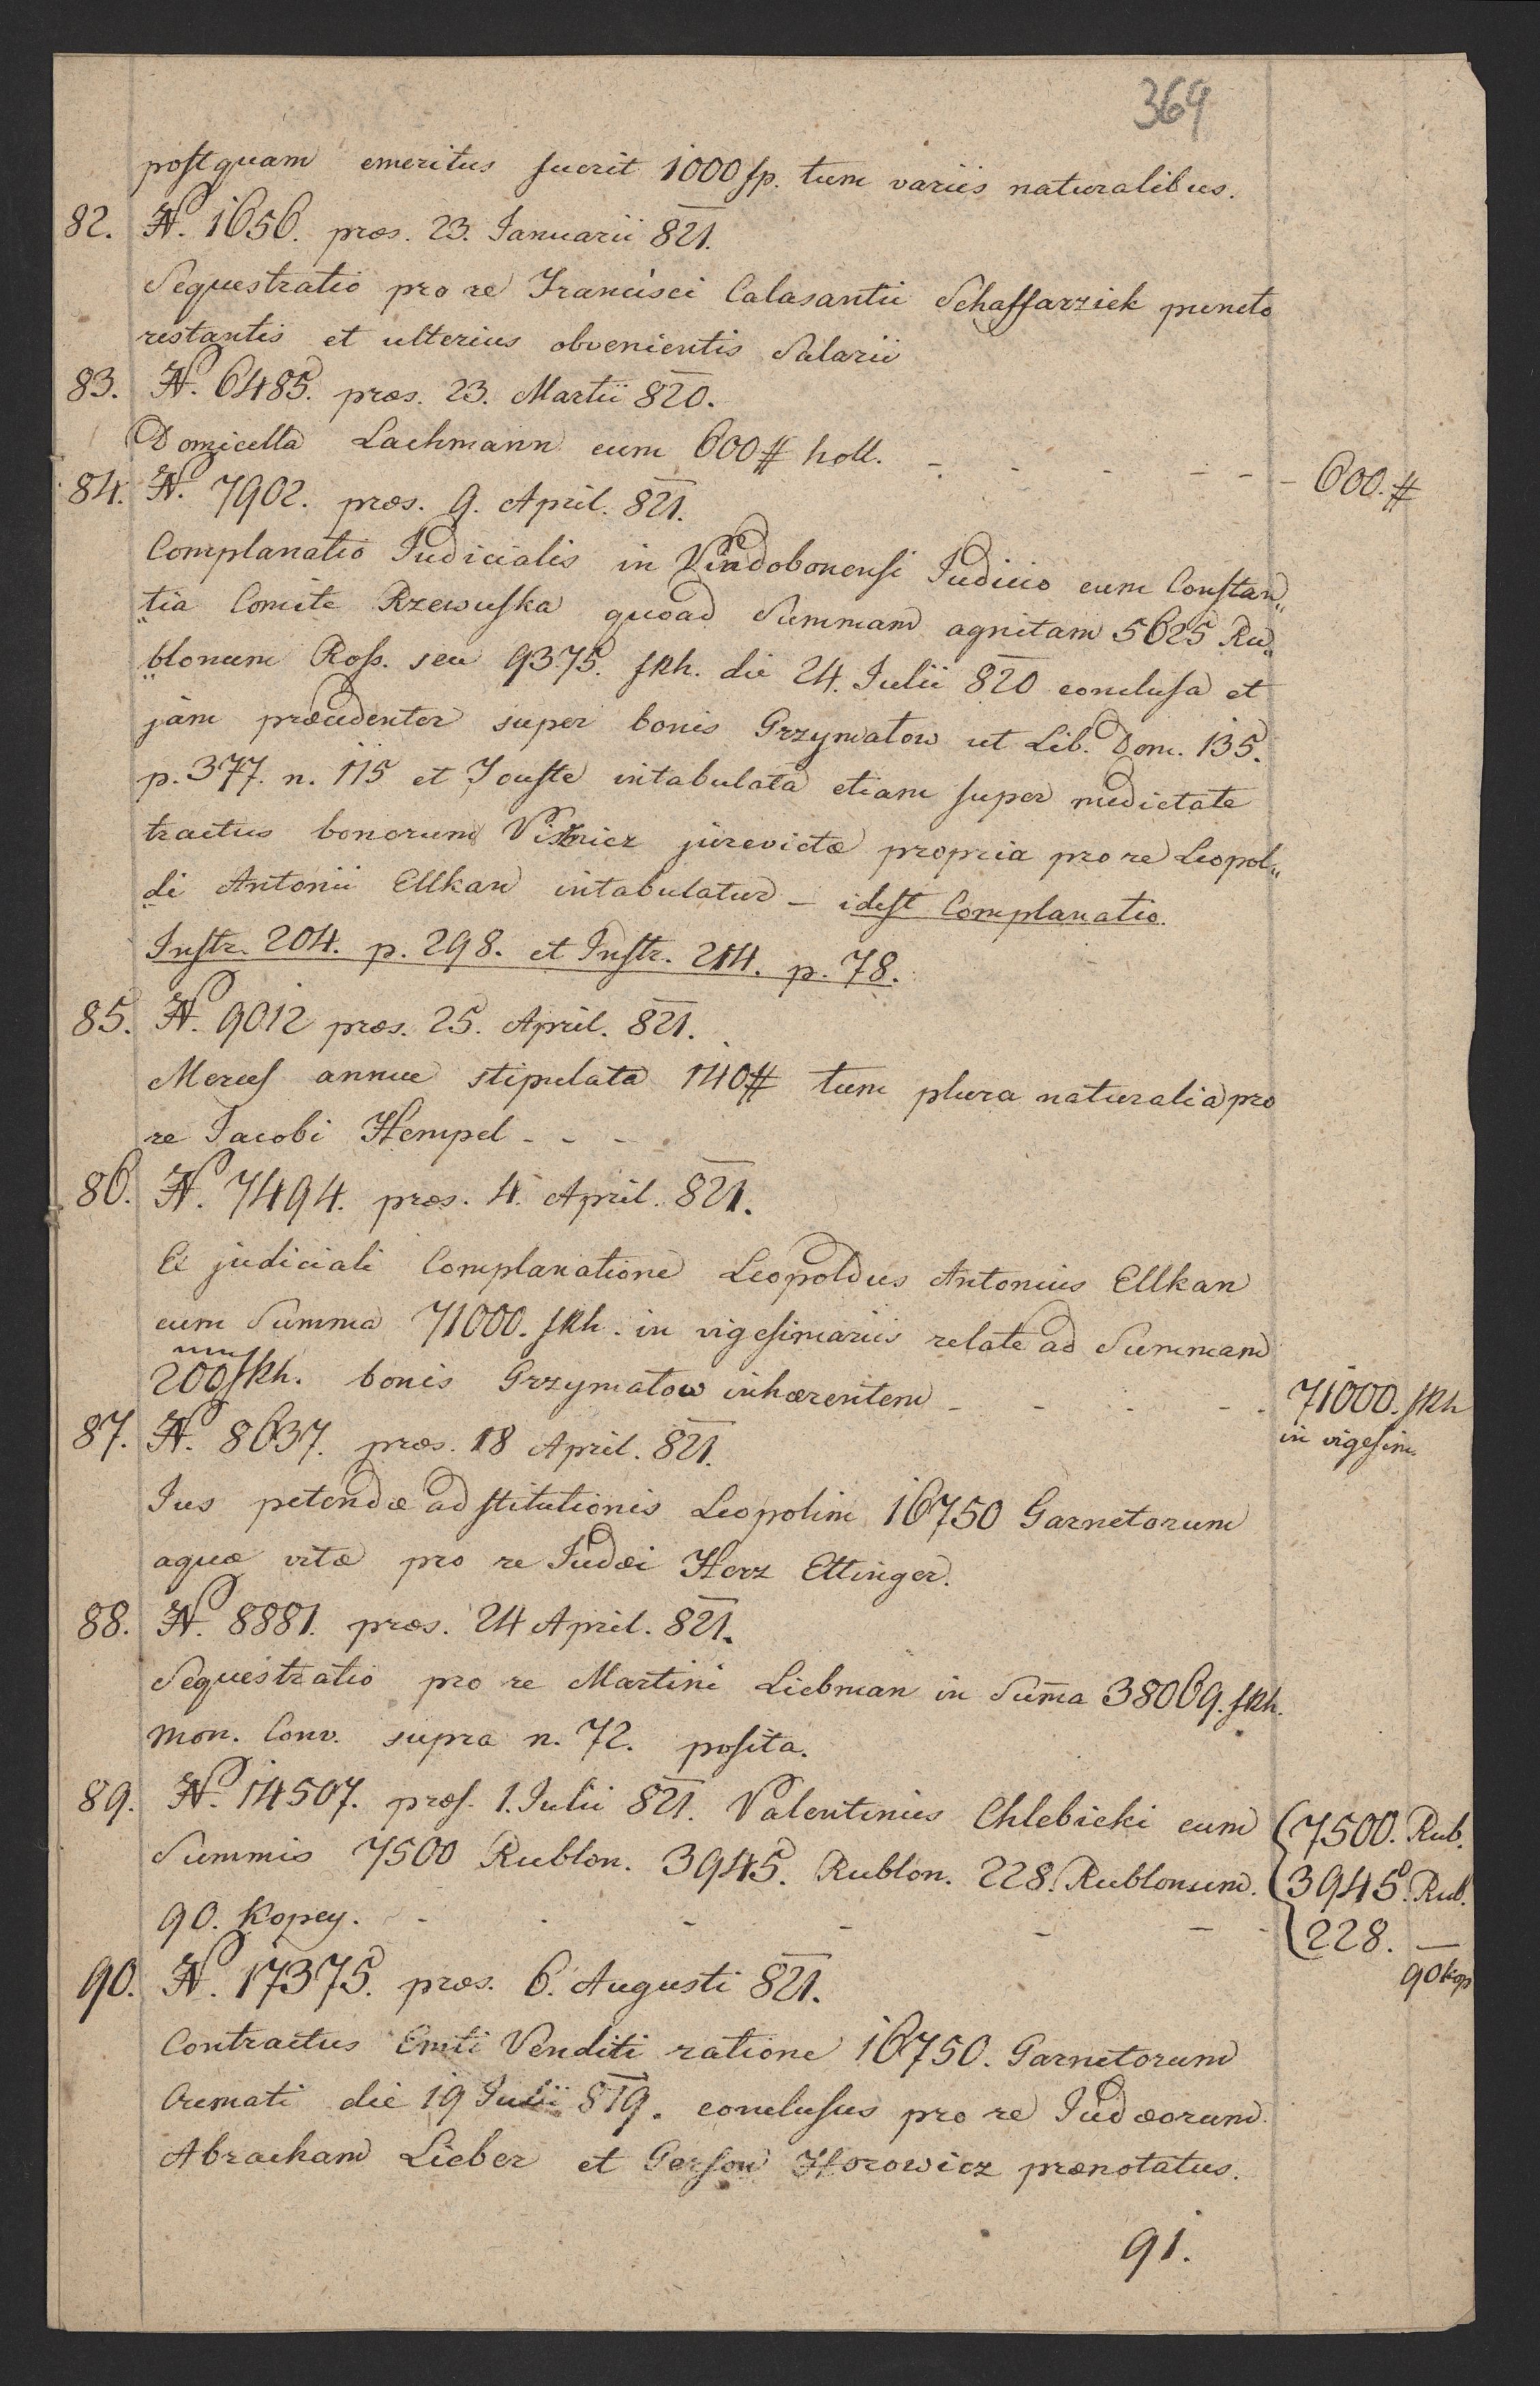 369
postquam emeritus fuerit 1000 fp. tum variis naturalibus.
82. N. 1656. præs. 23. Januarii 821.
Sequestratio pro re Francisci Calasantii Schaffarziek puncto
restantis et ulterius obvenientis Salarii
83. N. 6485. præs. 23. Martii 820.
Domicella Lachmann cum 600 # holl. - - - - - - 600. #
84. N. 7902. præs. 9. April. 821.
Complanatio Judicialis in Vindobonensi Judicio cum Constan„
„tia Comite Rzewuska quoad Summam agnitam 5625 Ru„
„blonum Ross. seu 9375. fRh. die 24. Julii 820 conclusa et
jam præcedenter super bonis Grzymałow ut Lib. Dom. 135.
p. 377. n. 115 et Touste intabulata etiam super medietate
tractus bonorum Wisnicz jurevictæ propria pro re Leopol„
„di Antonii Ellkan intabulatur – idest Complanatio.
Instr. 204. p. 298. et Instr. 214. p. 78.
85. N. 9012 præs. 25. April. 821.
Merces annue stipulata 140 # tum plura naturalia pro
re Jacobi Hempel - - -
86. N. 7494. præs. 4. April. 821.
E judiciali Complanatione Leopoldus Antonius Ellkan
cum Summa 71000. fRh. in vigesimariis relate ad Summam
200 fRh. bonis Grzymałow inhærentem - - - - - 71000. fRh
in vigesim.
87. N. 8637. præs. 18 April. 821.
Jus petendæ adstitutionis Leopolim 16750 Garnetorum
aquæ vitæ pro re Judæi Herz Ettinger.
88. N. 8881. præs. 24 April. 821.
Sequestratio pro re Martini Liebman in Suma 38069. fRh.
Mon. Conv. supra n. 72. posita.
89. N. 14507. præs. 1. Julii 821. Valentinus Chlebicki cum 7500. Rub.
Summis 7500 Rublon. 3945. Rublon. 228. Rublonum. 3945. Rub.
90. Kopey. - - - - - - - 228. —
90 kop
90. N. 17375. præs. 6. Augusti 821.
Contractus Emti Venditi ratione 16750. Garnetorum
Cremati die 19 Julii 819. conclusus pro re Judæorum
Abracham Lieber et Gerson Horowicz prænotatus.
91.